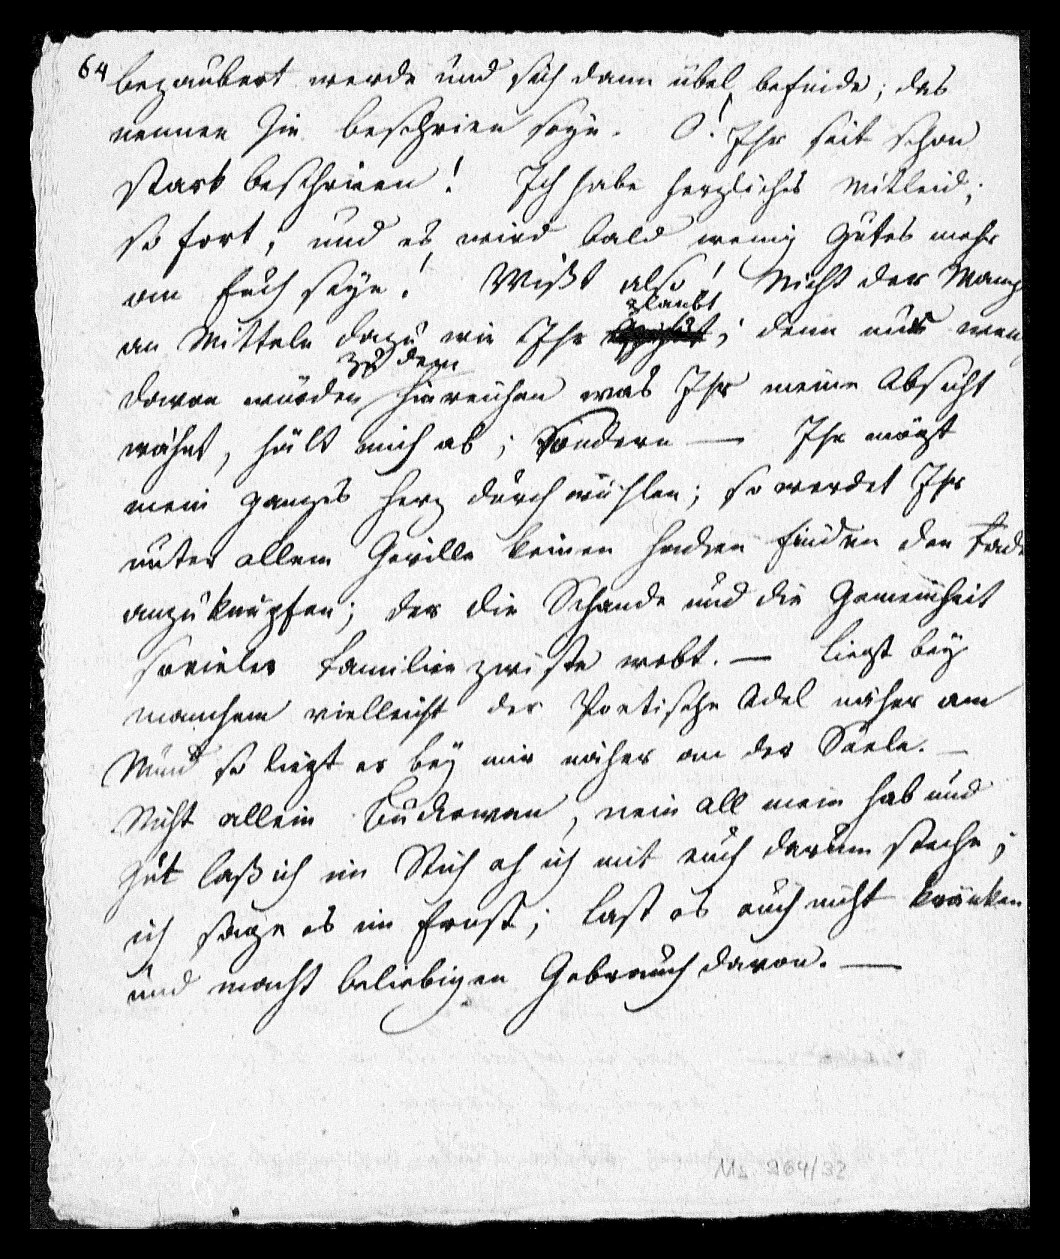 64
bezaubert werde und sich dann übel befinde; das
nennen sie beschrien seyn. O! Ihr seit schon
stark beschrieen! Ich habe herzliches Mitleid;
so fort, und es wird bald wenig Gutes mehr
an Euch seyn! Wißt also! Nicht der Mang
glaubt
an Mitteln dazu wie Ihr; denn nur wen
zu dem
davon würden hinreichen was Ihr meine Absicht
wähnt, hält mich ab; Sondern — Ihr mögt
mein ganzes Herz durchwühlen; so werdet Ihr
unter allem keinen finden den Fade
anzuknüpfen; der die Schande und die Gemeinheit
sovieler Familienzwiste webt. — Liegt bey
manchem vielleicht der Poetische Adel näher am
Mund so liegt er bey mir näher an der Seele. —
Nicht allein, nein all mein Hab und
Gut laß ich im Stich eh ich mit euch darum steche;
ich sage es im Ernst; last es euch nicht kränken
und macht beliebigen Gebrauch davon. —